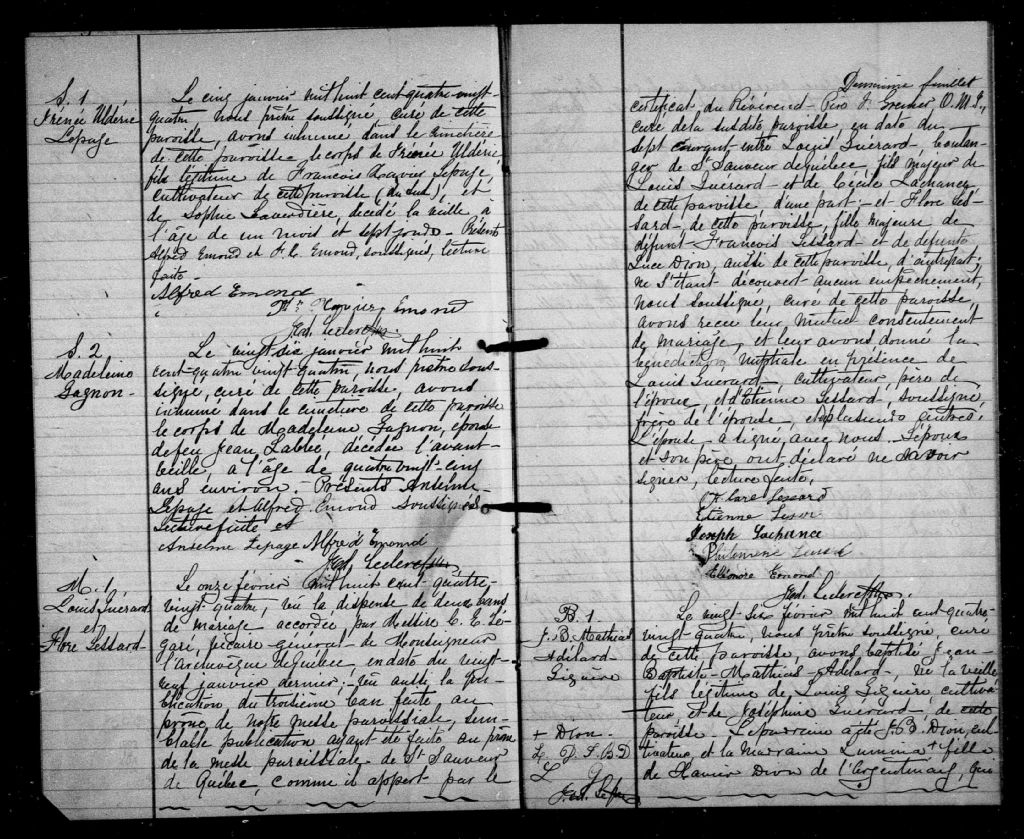 S. 1
Irénée Uldéric
Lepage
Le cinq janvier mil huit cent quatre-vingt-
quatre nous prêtre soussigné, curé de cette
paroisse, avons inhumé dans le cimetière
de cette paroisse le corps de Irénée Uldéric
fils légitime de François Xavier Lepage,
cultivateur de cette paroisse (du Sud), et
de Sophie Laverdière, décédé la veille à
l'âge de un mois et sept jours. Présents
Alfred Emond et F. X. Emond, soussignés, lecture
faite.
Alfred Emond
Frs Xavier Emond
Jos. Leclerc Ptre.
S. 2
Madeleine
Gagnon.
Le vingt six janvier mil huit
cent-quatre vingt quatre, nous prêtre sous-
signé, curé de cette paroisse, avons
inhumé dans le cimetière de cette paroisse
le corps de Madeleine Gagnon, épouse
de feu Jean Labbé, décédée l'avant-
veille, à l'âge de quatre vingt-cinq
ans environ. Présents Anselme
Lepage et Alfred Emond soussignés
Lecture faite et
Anselme Lepage Alfred Emond
Jos. Leclerc Ptre
M. 1
Louis Guérard
et
Flore Lessard
Le onze février mil huit cent quatre-
vingt-quatre, vu la dispense de deux bans
de mariage accordée par Messire C. E. Lé-
garé, vicaire général de Monseigneur
l'archevêque de Québec, en date du vingt-
neuf janvier dernier; vu aussi la pu-
blication du troisième ban faite au
prône de notre messe paroissiale, sem-
blable publication ayant été faite au prône
de la messe paroissiale de St Sauveur
de Québec, comme il appert par le
Deuxième feuillet
certificat du Révérend Père O. M. I.,
curé de la susdite paroisse, en date du
sept courant entre Louis Guérard, boulan-
ger de St Sauveur de Québec, fils majeur de
Louis Guérard et de Cécile Lachance,
de cette paroisse d'une part; et Flore Les-
sard, de cette paroisse, fille majeure de
défunt François Lessard et de défunte
Luce Dion, aussi de cette paroisse, d'autre part;
ne s'étant découvert aucun empêchement,
nous soussigné, curé de cette paroisse,
avons reçu leur mutuel consentement
de mariage, et leur avons donné la
bénédiction nuptiale en présence de
Louis Guérard, cultivateur, père de
l'époux, et d'Etienne Lessard, soussigné,
frère de l'épouse, et plusieurs autres.
L'épouse a signé avec nous. L'époux
et son père ont déclaré ne savoir
signer, lecture faite.
Flore Lessard
Etienne Lesard
Joseph Lachance
Philomène
Eléonore Emond
Jos. Leclerc Ptre.
B. 1
J. B. Mathias
Adélard
Giguère
Le vingt-six février mil huit cent quatre-
vingt-quatre, nous prêtre soussigné, curé
de cette paroisse, avons baptisé Jean-
Baptiste-Mathias-Adélard, né la veille
fils légitime de Louis Giguère, cultiva-
teur et de Joséphine Guérard, de cette
paroisse. Le parrain a été J. B. Dion, cul-
tivateur et la marraine Lumina + fille
de Xavier Dion de l'Argentenay, qui
+ Dion.
L. G. J. B. D
L. G.
Jos. Le Ptre